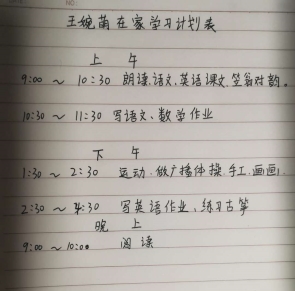 王婉萌在家学习计划表
上 午
9:00 ~ 10:30 朗读.语文.英语课文.笠翁对韵。
10:30 ~ 11:30 写语文、数学作业
下 午
1:30 ~ 2:30 运动.做广播体操.手工.画画.
2:30 ~ 4:30 写英语作业、练习古筝
晚 上
9:00 ~ 10:00 阅读